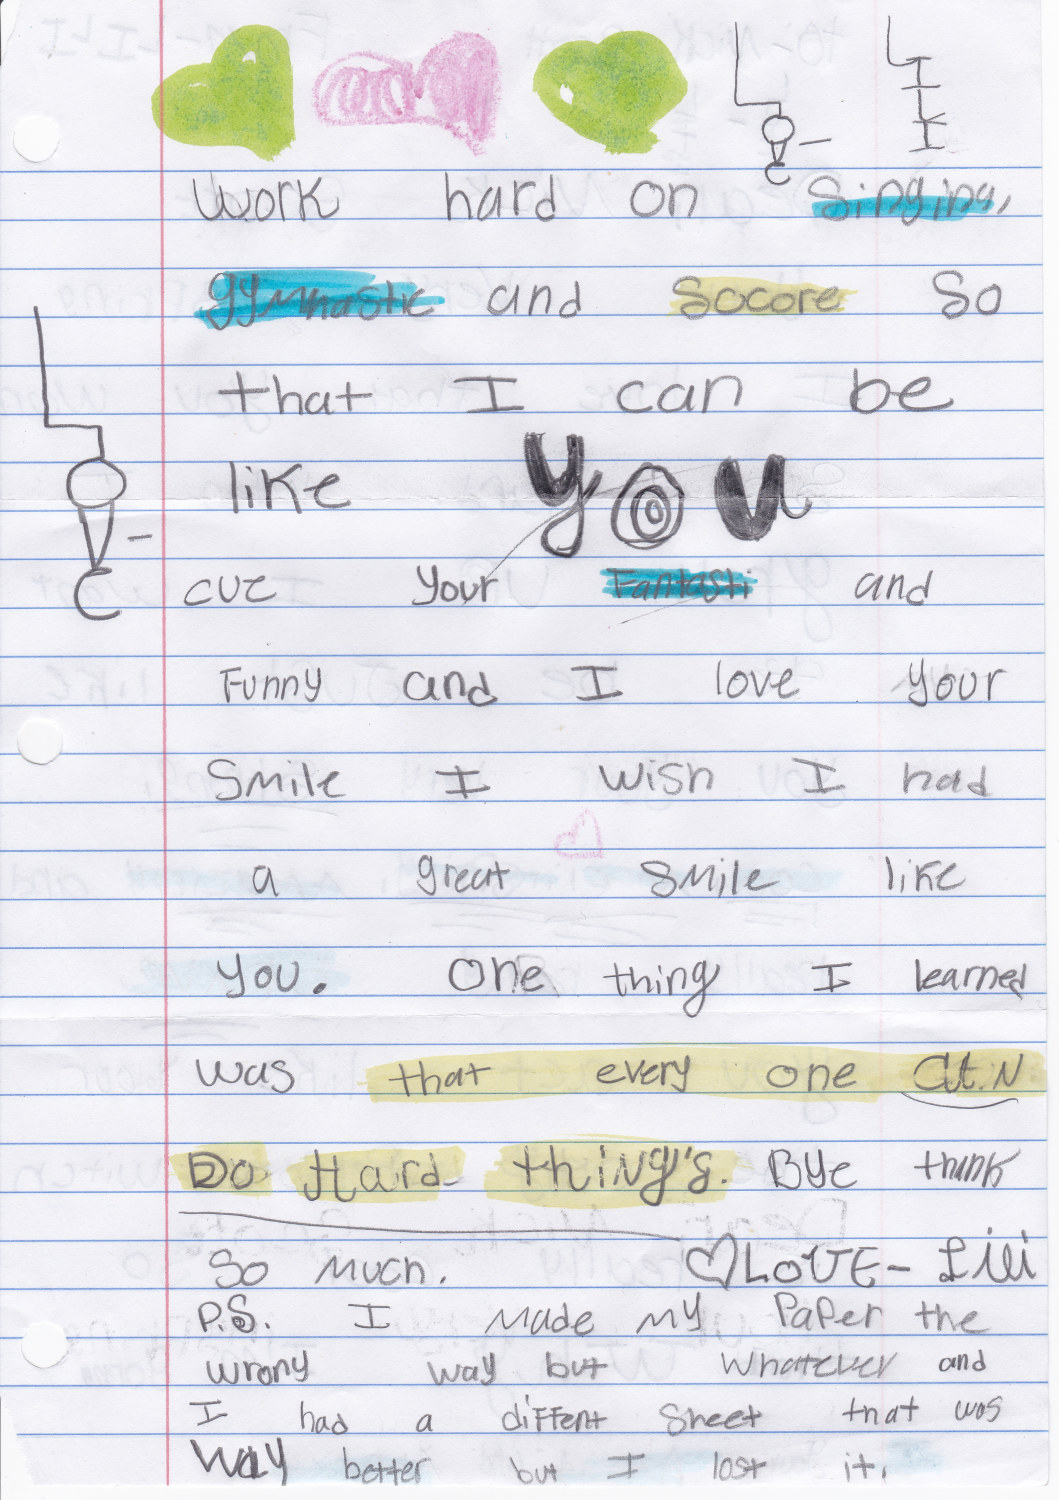 Work hard on Singing,
gymnastic and Socore So
that I can be
like you
cuz your Fantasti and
Funny and I love your
Smile I wish I had
a great smile like
you. One thing I learned
was that every one CAN
Do Hard thiNg's. BYe thınk
So Much. LOVE- Lili
P.S. I Made My PaPer the
wrony way but Whatever and
I had a diffent Sheet that was
WAY better but I lost it.